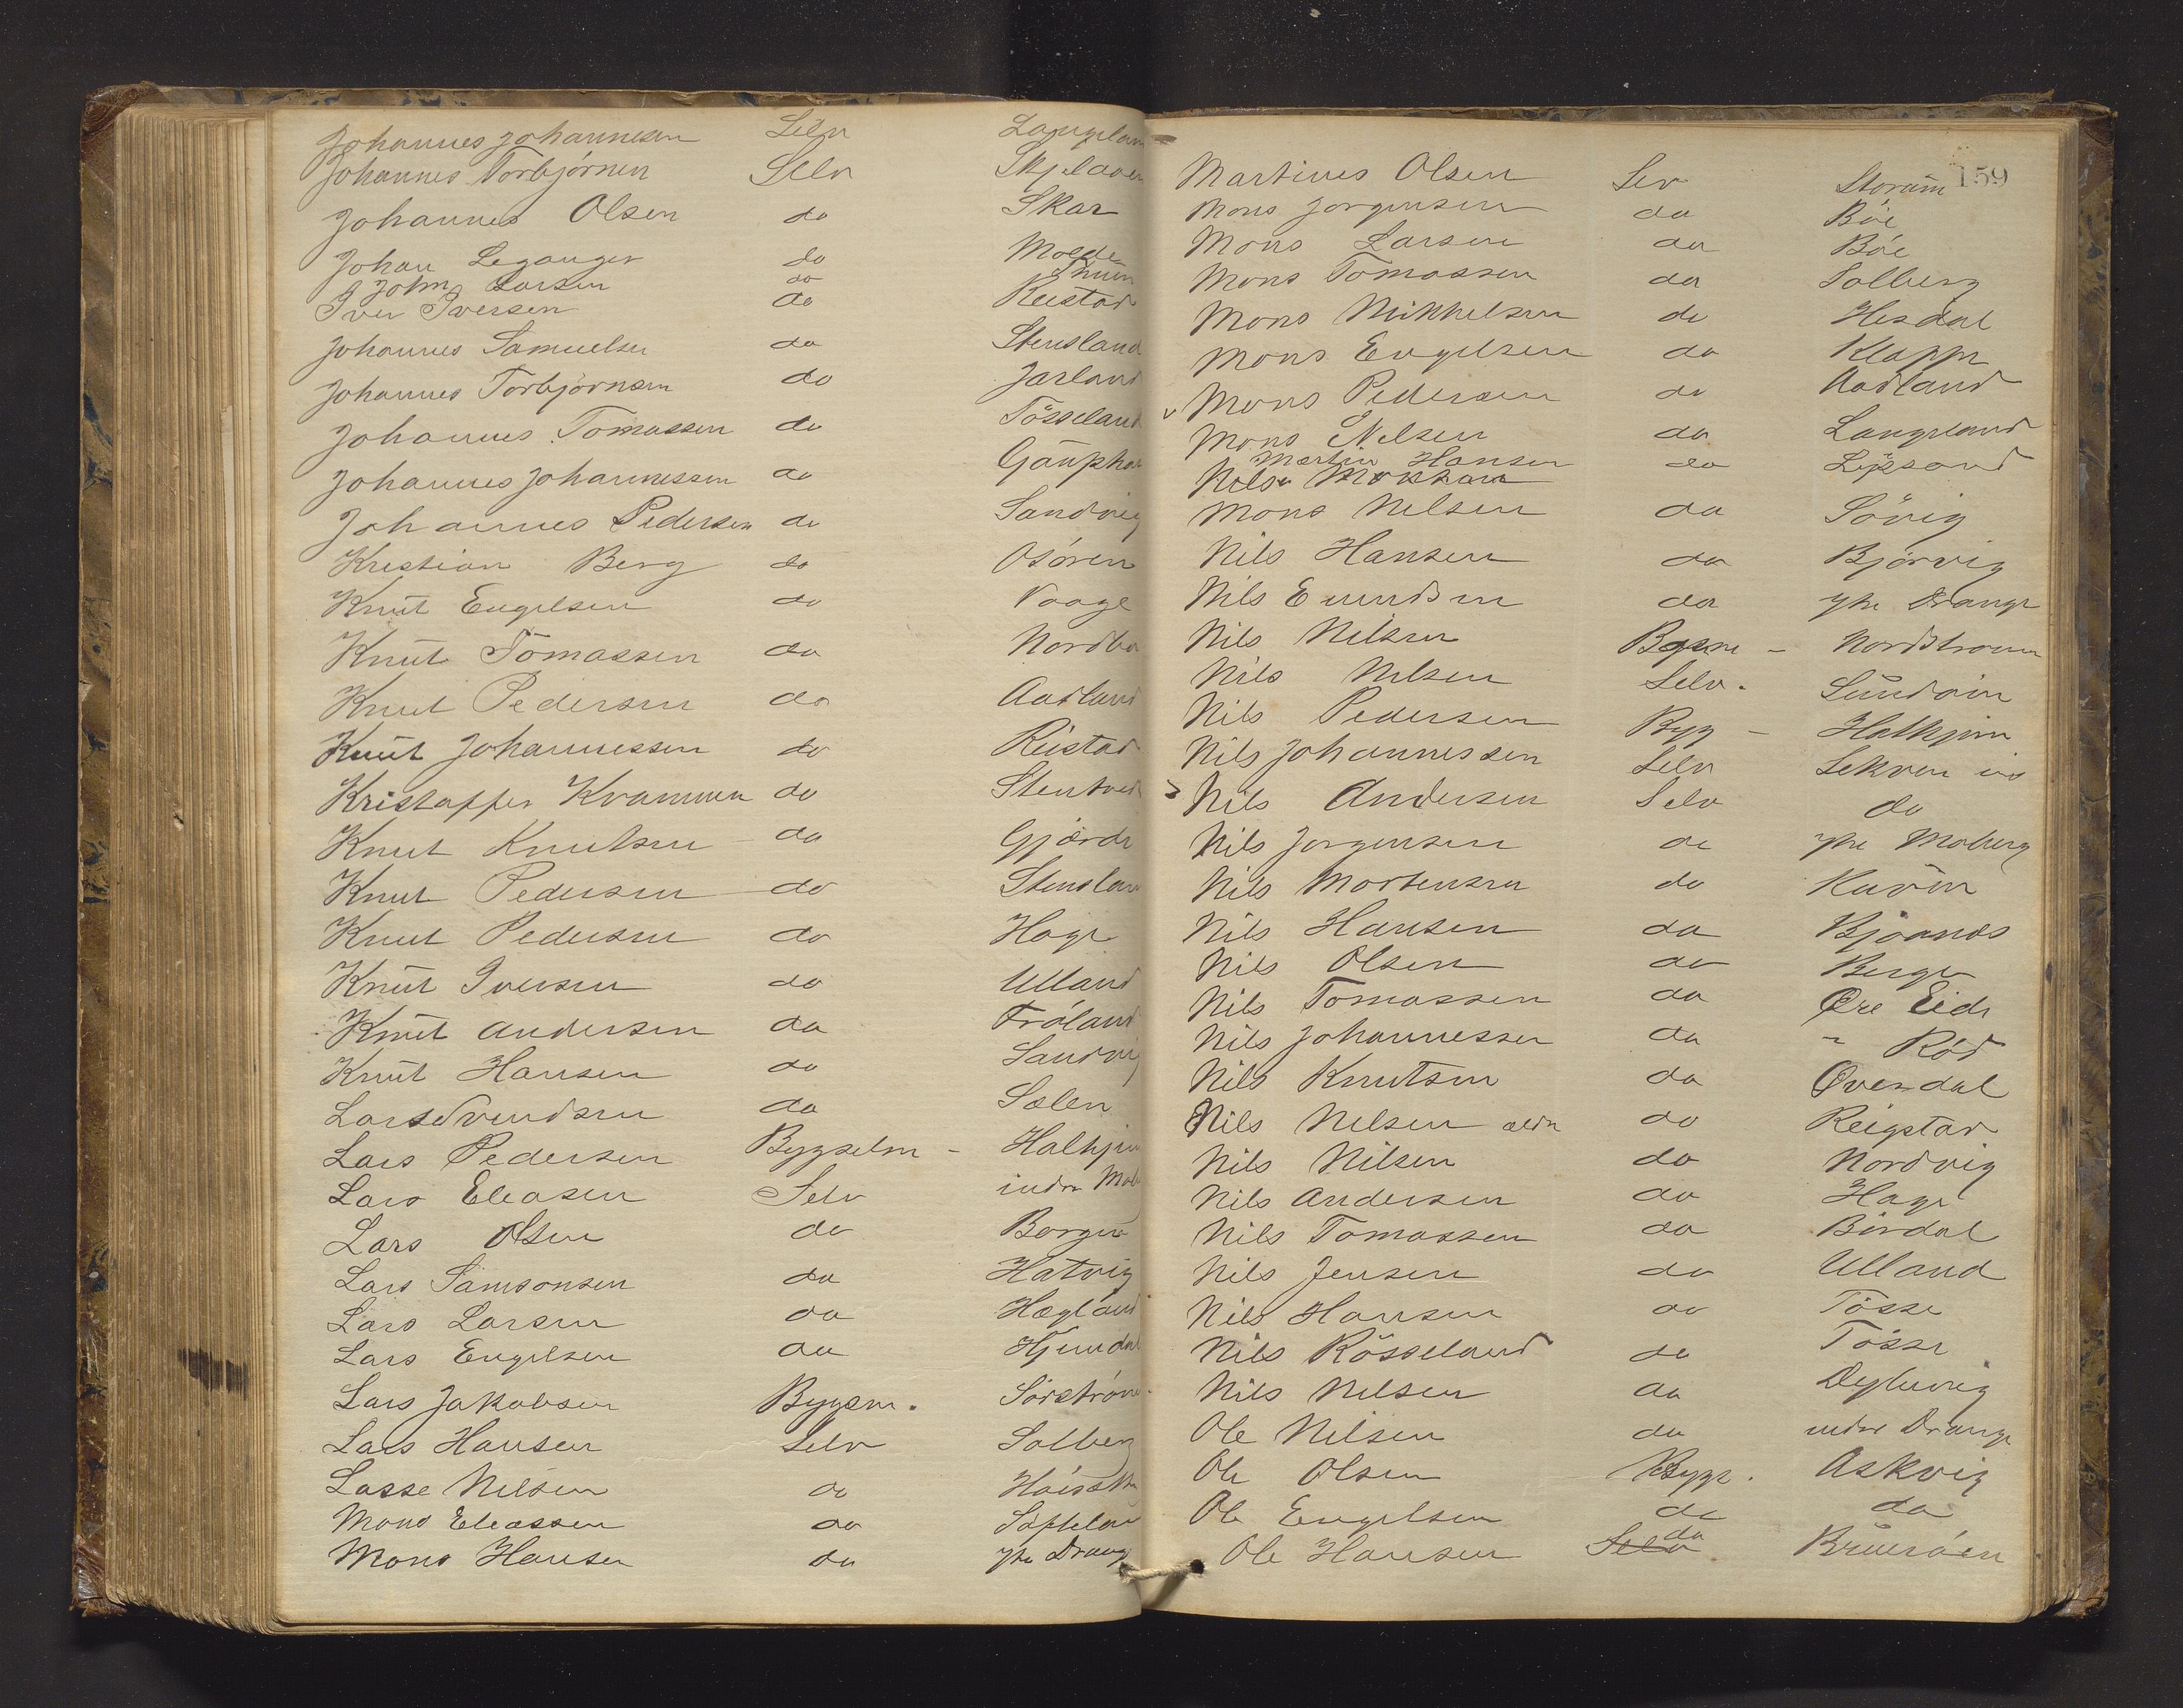 Johannes Johannesen Selv Langelan
Johannes Torbjörnen Selv Skjelaven
Johannes Olsen do Skar
Johan Leganger do Molde
John Larsen do
Iver Iversen do Reistad
Johannes Samuelsen do Stensland
Johannes Torbjörnsen do Jarland
Johannes Tomassen do Tösseland
Johannes Johannessen do Gäuphol
Johannes Pedersen do Sandvig
Kristian Berg do Osören
Knut Engelsen do Vaage
Knut Tomassen do Nordbö
Knut Pedersen do Aadland
Knut Johannessen do Reistad
Kristoffer Kvammen do Stentved
Knut Knutsen do Gjærde
Knut Pedersen do Stenslan
Knut Pedersen do Hage
Knut Iversen do Ulland
Knut Andersen do Fröland
Knut Hansen do Sandvig
Lars Svendsen do Sælen
Lars Pedersen Bygselm - Halhjem
Lars Eleasen Selv indre Mob
Lars Olsen do Borgen
Lars Samsonsen do Hatvig
Lars Larsen do Hægland
Lars Engelsen do Hjemdal
Lars Jakobsen Bygsm. Sörström
Lars Hansen Selv Solberg
Lasse Nilsen do
Mons Eleassen do Söfteland
Mons Hansen do ytre Drange
159
Martines Olsen Selv Storum
Mons Jorgensen do Böe
Mons Larsen do Böe
Mons Tomassen do Solberg
Mons Mikkelsen do Hesdal
Mons Engelsen do Kloppe
v Mons Pedersen do Aadland
Mons Nelsen do Langeland
Martin Hansen do Lepsöand
Nils
Mons Nelsen do Sövig
Nils Hansen do Bjørvig
Nils Emundsen do ytre Drange
Nils Nilsen Bygsm - Nordstrøum
Nils Nelsen Selv. Sundøien
Nils Pedersen Byg - Halhjem
Nils Johannessen Selv Lekven in
Nils Andersen Selv do
Nils Jorgensen do ytre Moberg
Nils Mortensen do Kuven
Nils Hansen do Bjöanes
Nils Olsen do Berge
Nils Tomassen do Øre Eide
Nils Johannessen do " Röd
Nils Knutsen do Øvendal
Nils Nelsen ældr do Reigstad
Nils Nilsen do Nordvig
Nils Andersen do Hage
Nils Tomassen do Bördal
Nils Jensen do Ulland
Nils Hansen do Tösse
Nils Rösseland do Tösse
Nils Nilsen do
Ole Nilsen do indre Drange
Ole Olsen Bygs. Askvig
Ole Engelsen do do
Ole Hansen Selv do Bruröen